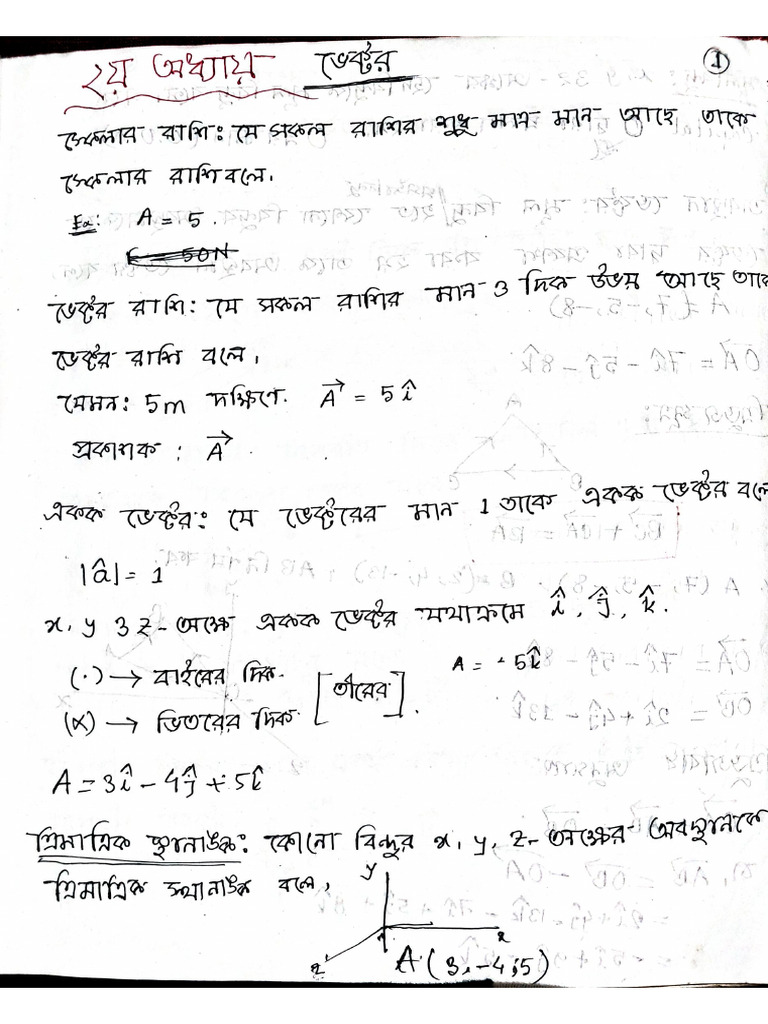 ২য় অধ্যায় ভেক্টর ①
স্কেলার রাশি: যে সকল রাশির শুধু মাত্র মান আছে তাকে
স্কেলার রাশি বলে।
Ex: A = 5.
F = 50N
ভেক্টর রাশি: যে সকল রাশির মান ও দিক উভয় আছে তাকে
ভেক্টর রাশি বলে।
যেমন: 5m দক্ষিণে. A⃗ = 5î
প্রকাশক : A⃗.
একক ভেক্টর: যে ভেক্টরের মান 1 তাকে একক ভেক্টর বলে
|â| = 1
x, y ও z-অক্ষে একক ভেক্টর যথাক্রমে î, ĵ, k̂.
(·) → বাইরের দিক- [তীরের] A = -5k̂
(x) → ভিতরের দিক
A = 3î - 4ĵ + 5k̂
ত্রিমাত্রিক স্থানাঙ্ক: কোনো বিন্দুর x, y, z-অক্ষের অবস্থানকে
ত্রিমাত্রিক স্থানাঙ্ক বলে,
y
x
z
A (3, -4, 5)